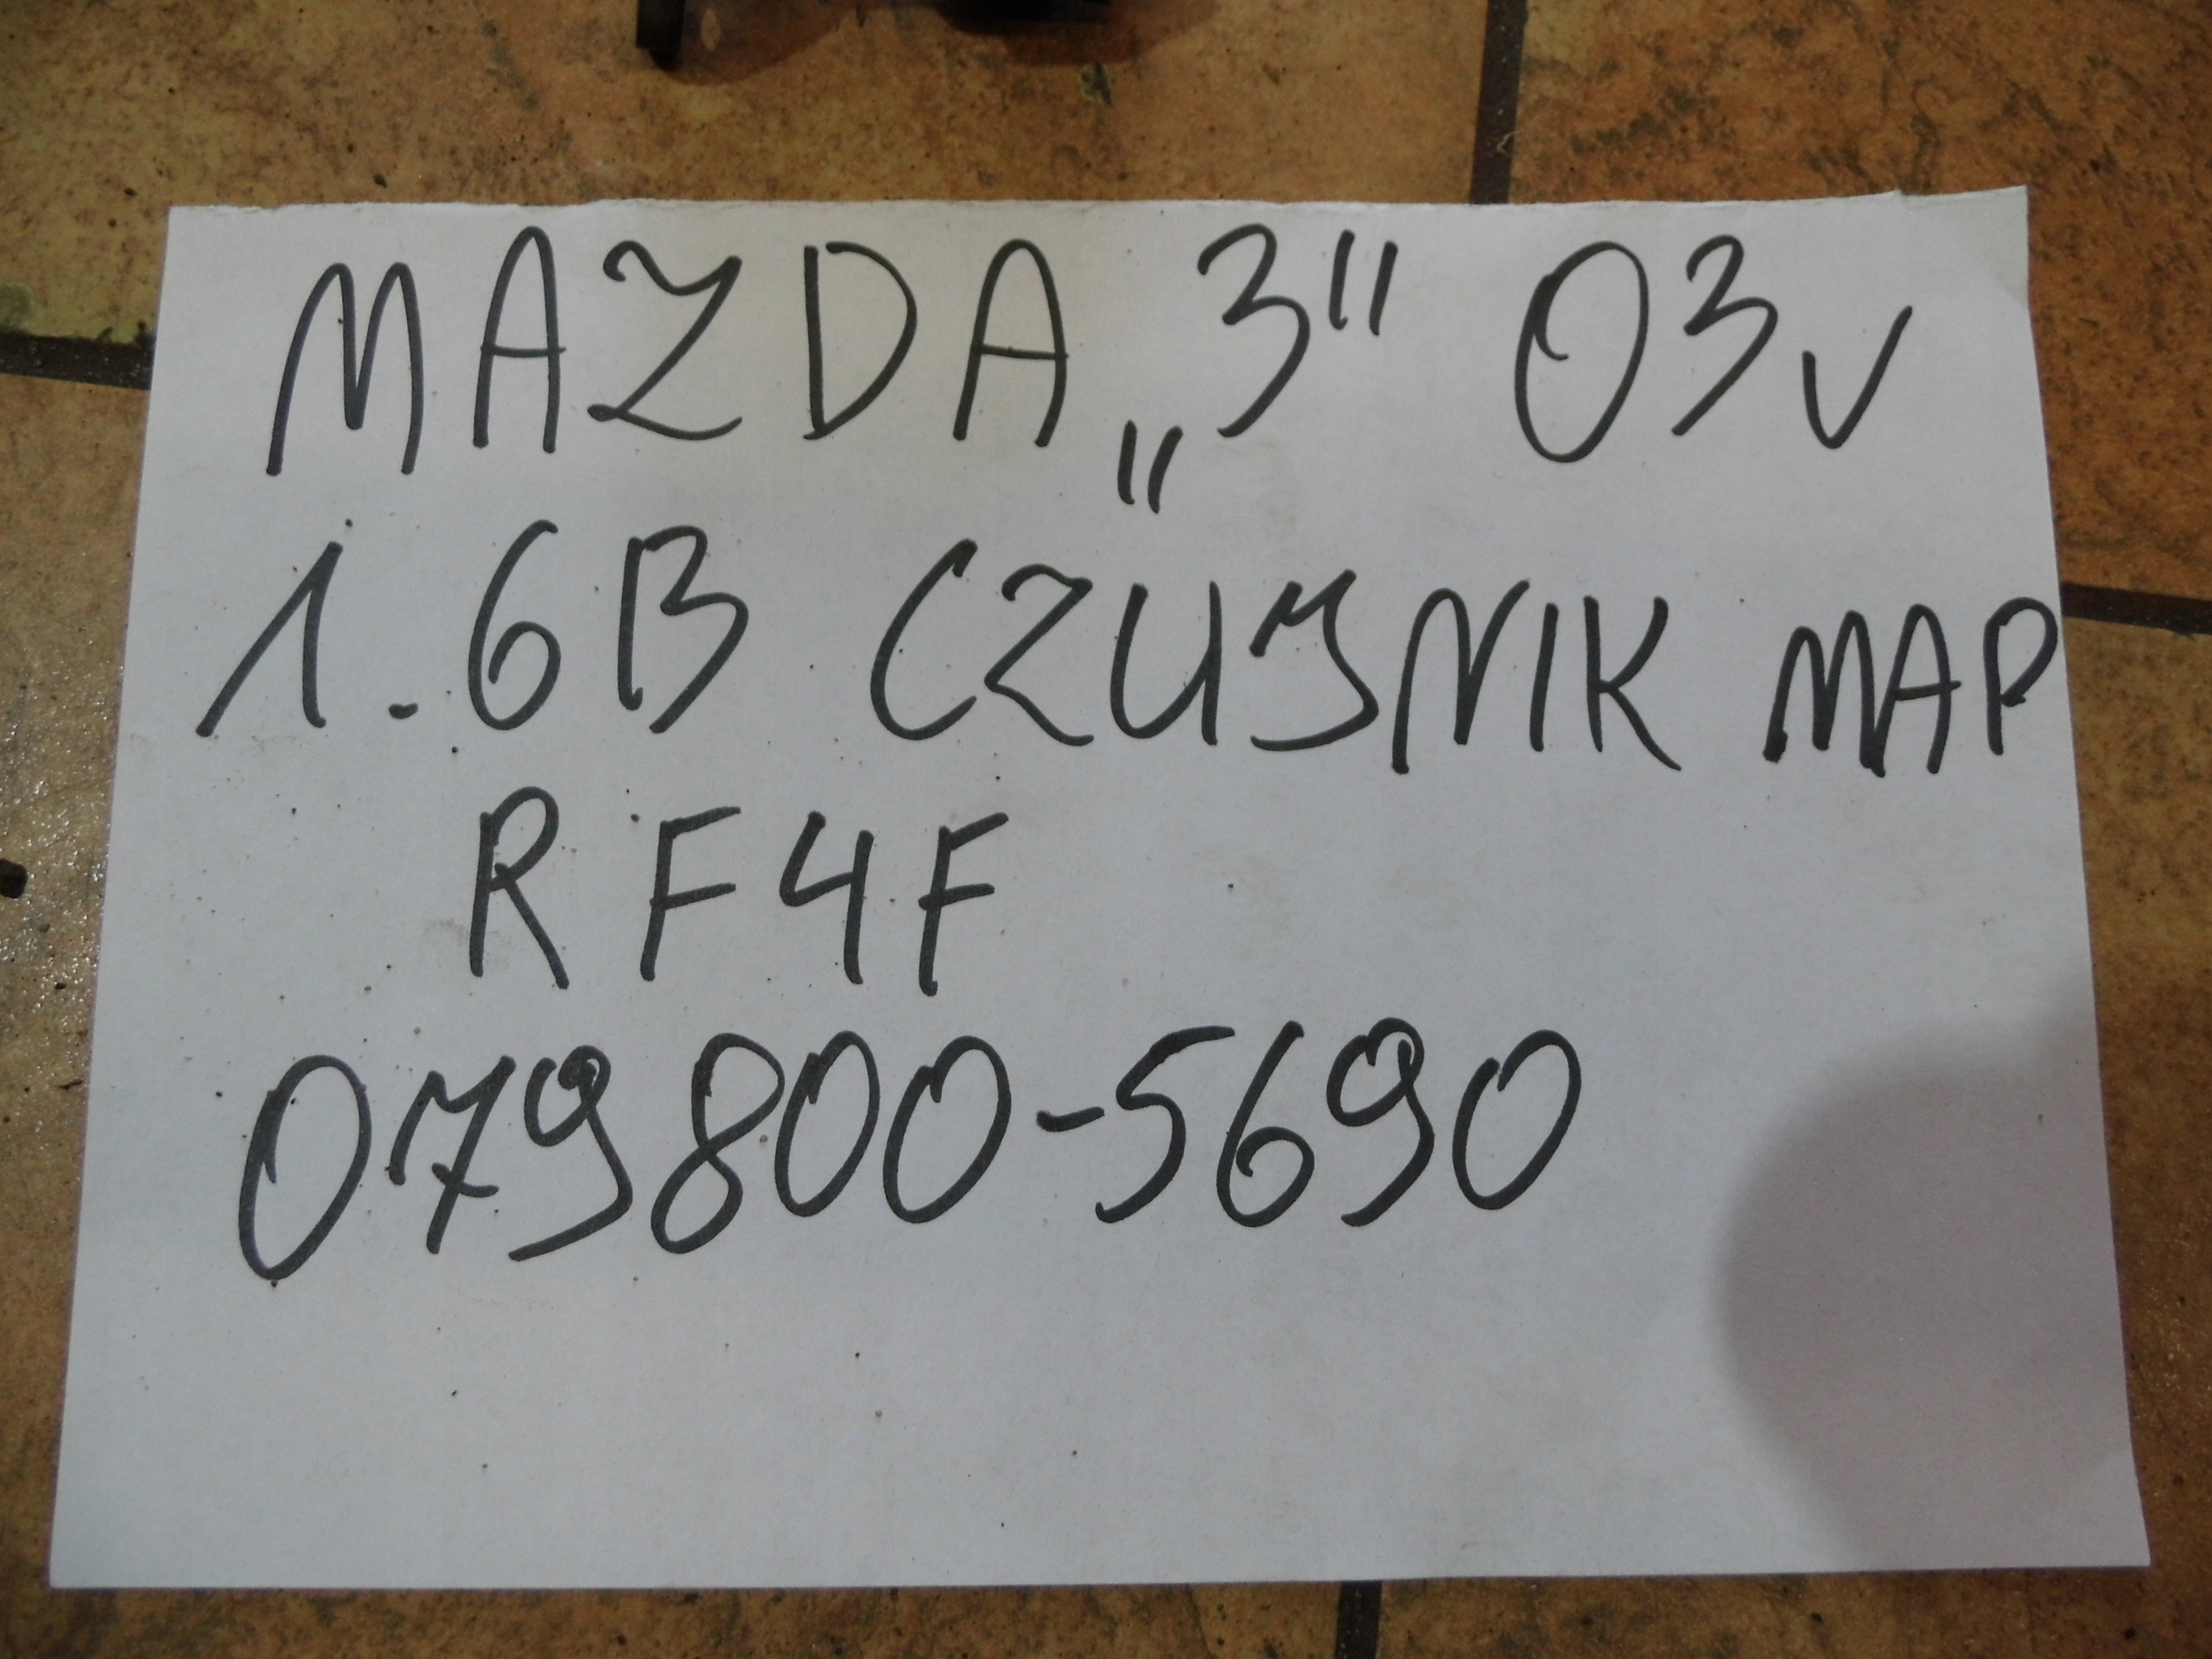 MAZDA „3" 03r
1.6B CZUJNIK MAP
RF4F
079800-5690